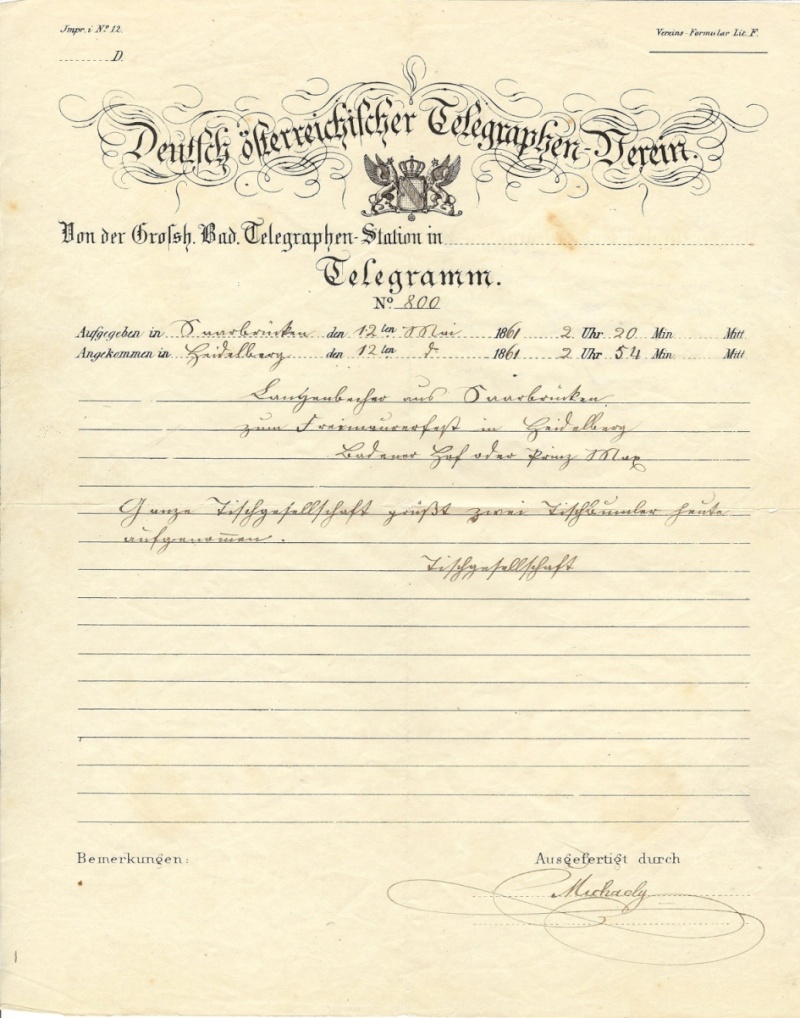 Impr. i No 12.
Vereins-Formular Lit. F.
D.
Deutsch österreichischer Telegraphen-Verein.
Von der Grossh. Bad. Telegraphen-Station in
Telegramm.
No 800
Aufgegeben in Saarbrücken den 12ten Mai 1861 2 Uhr 20 Min Mitt
Angekommen in Heidelberg den 12ten d 1861 2 Uhr 54 Min Mitt
Lantzenbecher aus Saarbrücken
zum Freimaurerfest in Heidelberg
Badener Hof oder Prinz Max
Ganze Tischgesellschaft grüßt zwei Tischbumler heute
aufgenommen.
Tischgesellschaft
Bemerkungen:
Ausgefertigt durch
Michaely